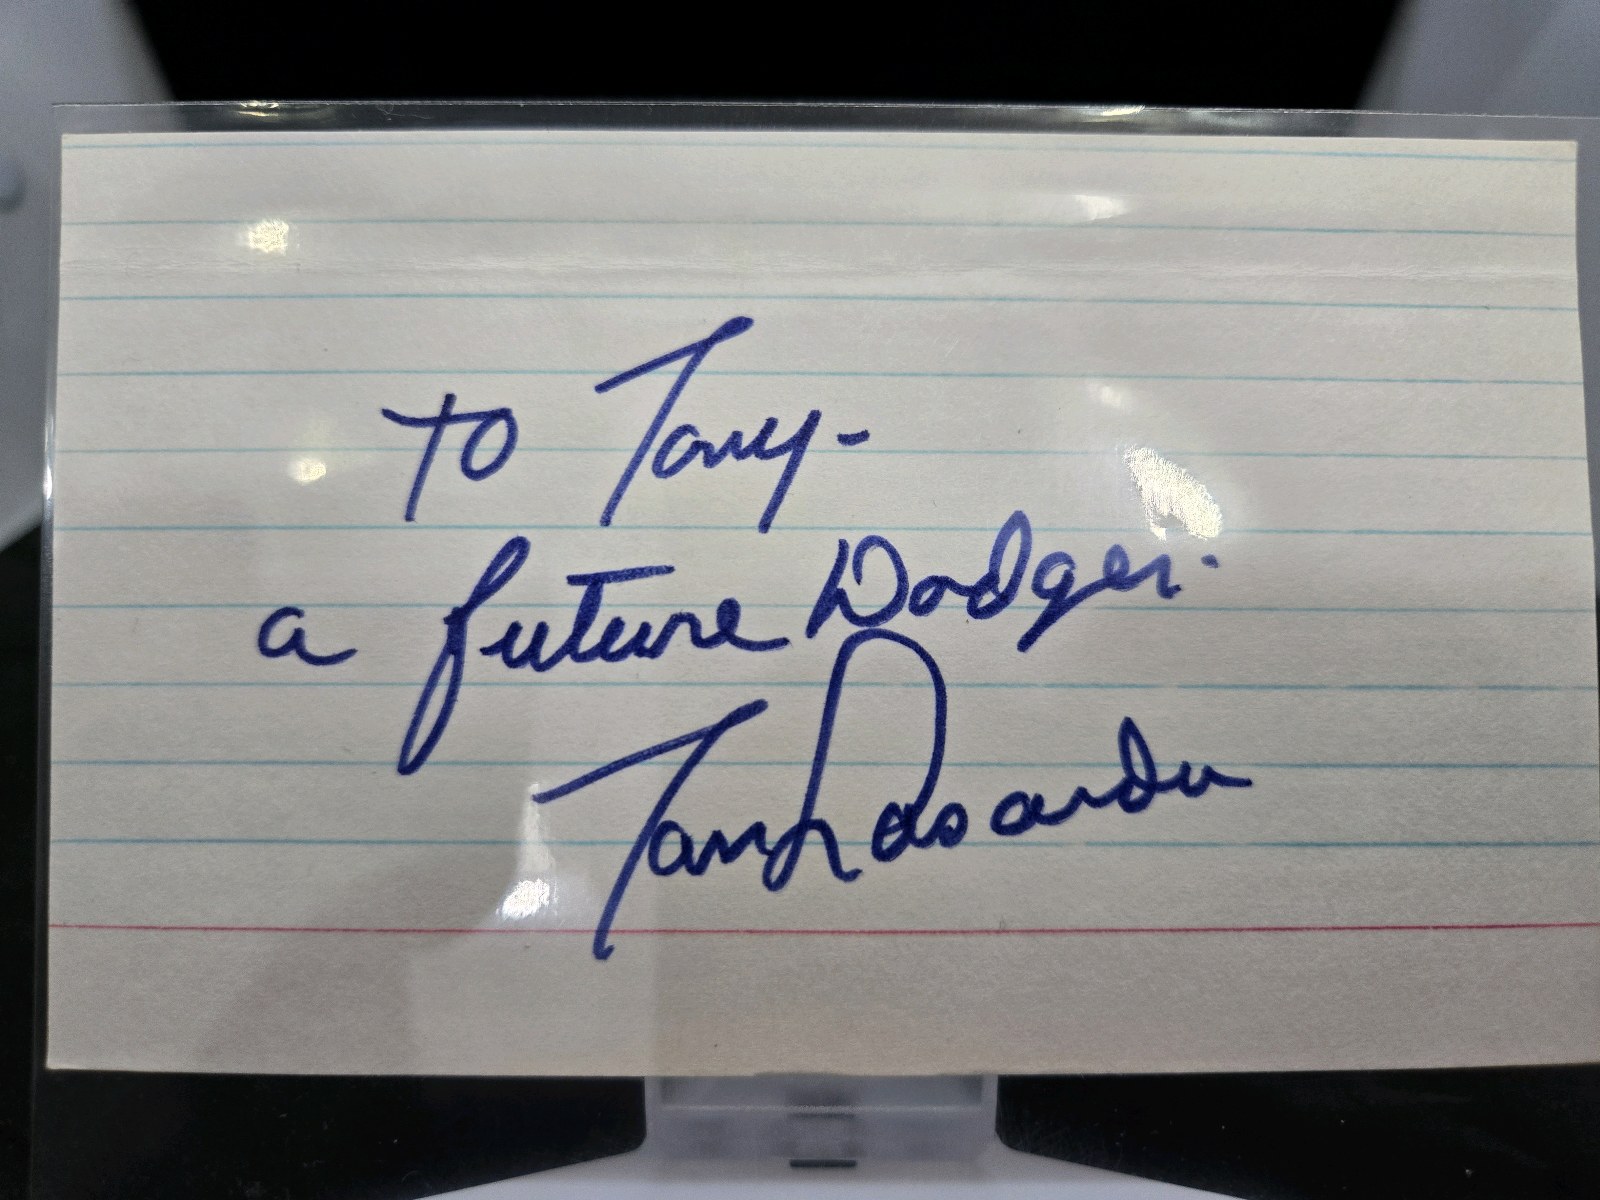 to Tony-
a future Dodger.
Tom Lasorda